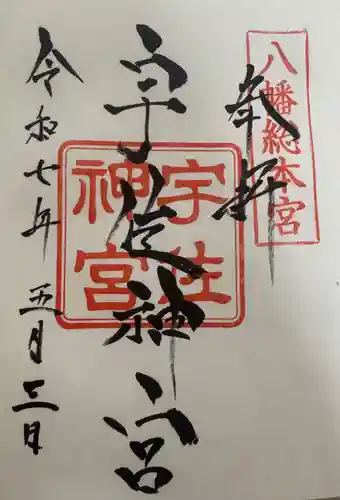 八幡總本宮
奉拝
宇佐神宮
宇佐
神宮
令和七年五月三日